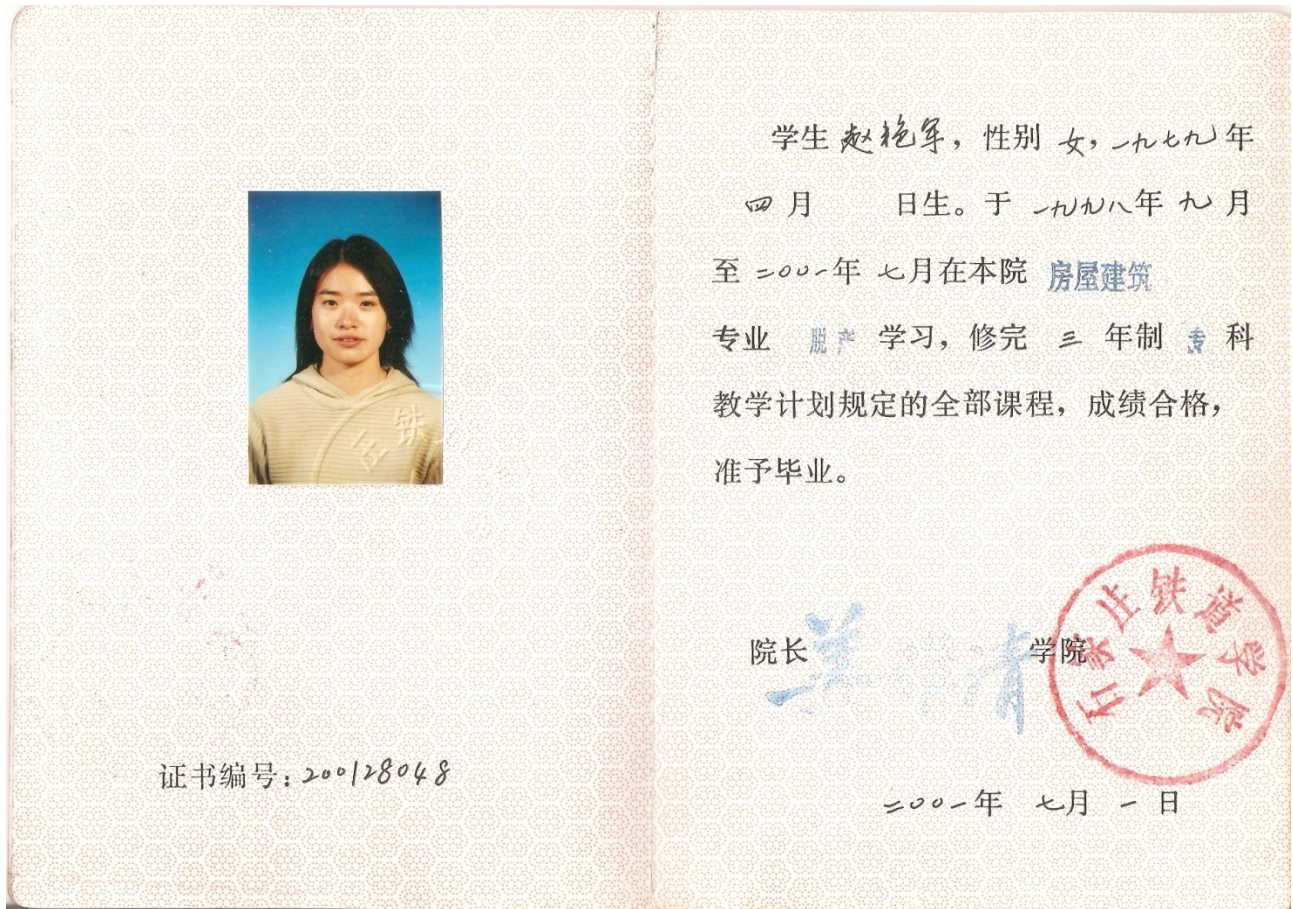 证书编号:200128048
学生 赵艳军,性别 女,一九七九年
四月 日生。于 一九九八年 九 月
至 二〇〇一年 七月在本院 房屋建筑
专业 脱产 学习,修完 三 年制 专 科
教学计划规定的全部课程,成绩合格,
准予毕业。
院长 学院
石家庄铁道学院
二〇〇一年 七月 一 日